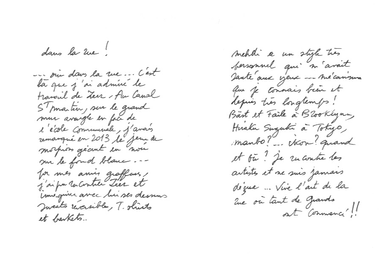 dans la rue !
--- oui dans la rue ... c'est
là que j'ai admiré le
travail de Zeer. Au Canal
St Martin, sur le grand
mur aveugle en face de
l'école Communale, j'avais
remarqué en 2013 le jeu de
morpion géant en noir
sur le fond blanc ...
par mes amis graffeurs,
j'ai pu rencontrer Zeer et
imaginer avec lui ses dessins
sweats réversibles, T. shirts
et baskets..
mehdi a un style très
personnel qui m'avait
sauté aux yeux --- mécanisme
que je connais bien et
depuis très longtemps !
Bäst et Faile à Brooklyn,
à Tokyo,
quand
et où ? Je rencontre les
artistes et ne suis jamais
déçue ... Vive l'art de la
rue où tant de grands
ont commencé !!